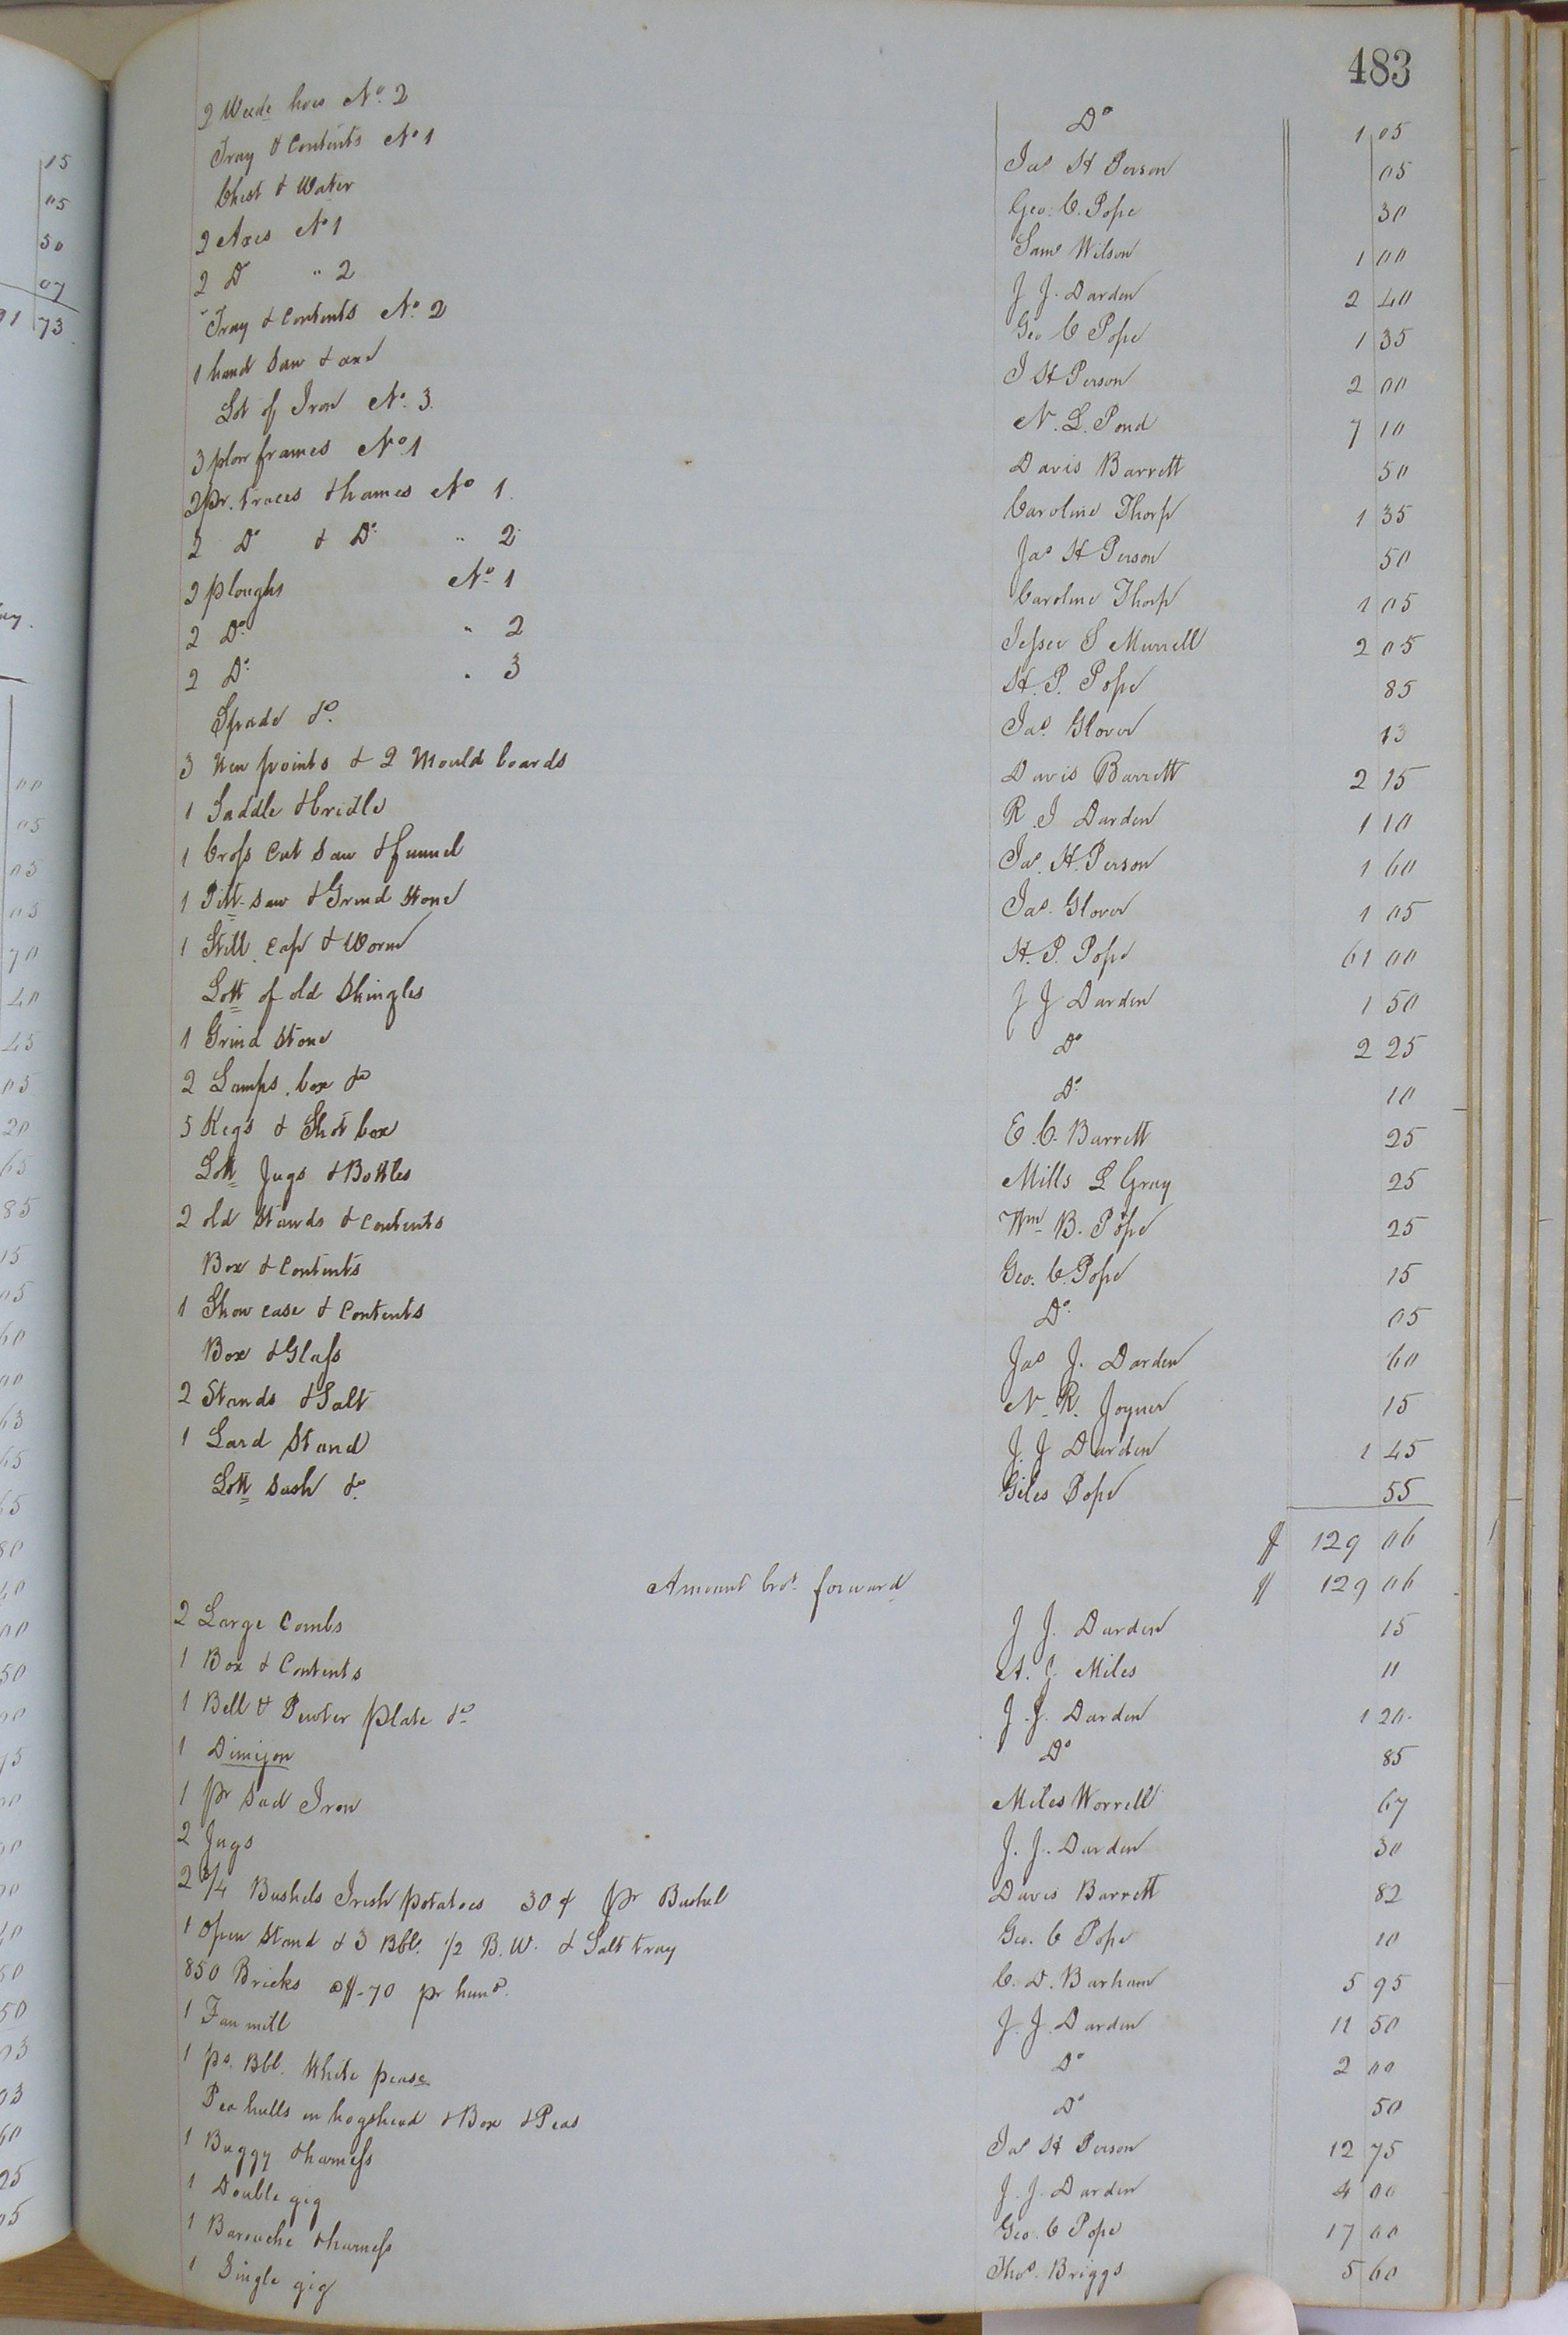 483
2 Weede hoes No. 2 Do 1 05
Tray & Contents No 1 Jas H Person 05
Chest & Water Geo: C. Pope 30
2 Axes No 1 Saml Wilson 1 00
2 Do " 2 J J. Darden 2 40
Tray & Contents No. 2 Geo C Pope 1 35
1 hand Saw & axe J H Person 2 00
Lot of Iron No. 3. N. L. Pond 7 10
3 plow frames No. 1 Davis Barrett 50
2 pr. traces & hames No 1. Caroline Thorp 1 35
2 Do & Do " 2 Jas H Person 50
2 ploughs No. 1 Caroline Thorp 1 05
2 Do. " 2 Jessee S Murrell 2 05
2 Do. " 3 H. P. Pope 85
Spade &c. Jas. Glover 13
3 New points & 2 Mould boards Davis Barrett 2 15
1 Saddle & bridle R. J Darden 1 10
1 Cross Cut Saw & funnel Jas. H. Person 1 60
1 Pitt Saw & Grind Stone Jas. Glover 1 05
1 Still, Cap & Worm H. P. Pope 61 00
Lott of old Shingles J J Darden 1 50
1 Grind Stone Do 2 25
2 Lamps, box &c Do. 10
5 Kegs & Shot box E. C. Barrett 25
Lott Jugs & Bottles Mills L Gray 25
2 old Stands & Contents Wm B. Pope 25
Box & Contents Geo. C. Pope 15
1 Show case & Contents Do. 05
Box & Glass Jas J. Darden 60
2 Stands & Salt N. R. Joyner 15
1 Lard Stand J. J Darden 1 45
Lott Sash &c. Giles Pope 55
$ 129 06
Amount brot. forward $ 129 06
2 Large Combs J J. Darden 15
1 Box & Contents A. J Miles 11
1 Bell & Pewter plate &c J. J. Darden 1 20
1 Dimijon Do 85
1 pr Sad Iron Miles Worrell 67
2 Jugs J. J. Darden 30
2 3/4 Bushels Irish potatoes 30 ¢ pr Bushel Davis Barrett 82
1 Open Stand & 3 Bbl. 1/2 B. W. & Salt tray Geo. C Pope 10
850 Bricks @ $-70 pr hund. C. D. Barham 5 95
1 Fan mill J. J. Darden 11 50
1 ps. Bbl. White pease Do 2 00
Pea hulls in hogshead & Box & Peas Do 50
1 Buggy & harness Jas H Person 12 75
1 Double gig J. J. Darden 4 00
1 Barouche & harness Geo. C Pope 17 00
1 Single gig Thos. Briggs 5 60